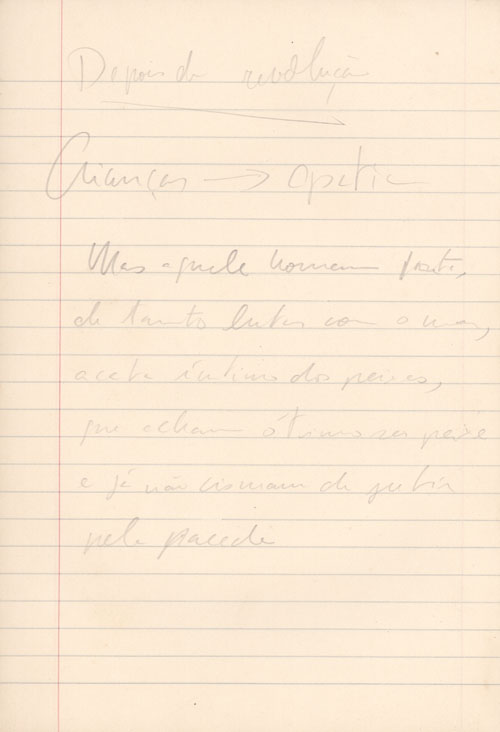 Depois da revolução
Crianças → apatia
Mas aquele homem
de tanto lutar com o mar,
acaba íntimo dos peixes,
que acham ótimo ser peixe
e já não cismam de
pela parede